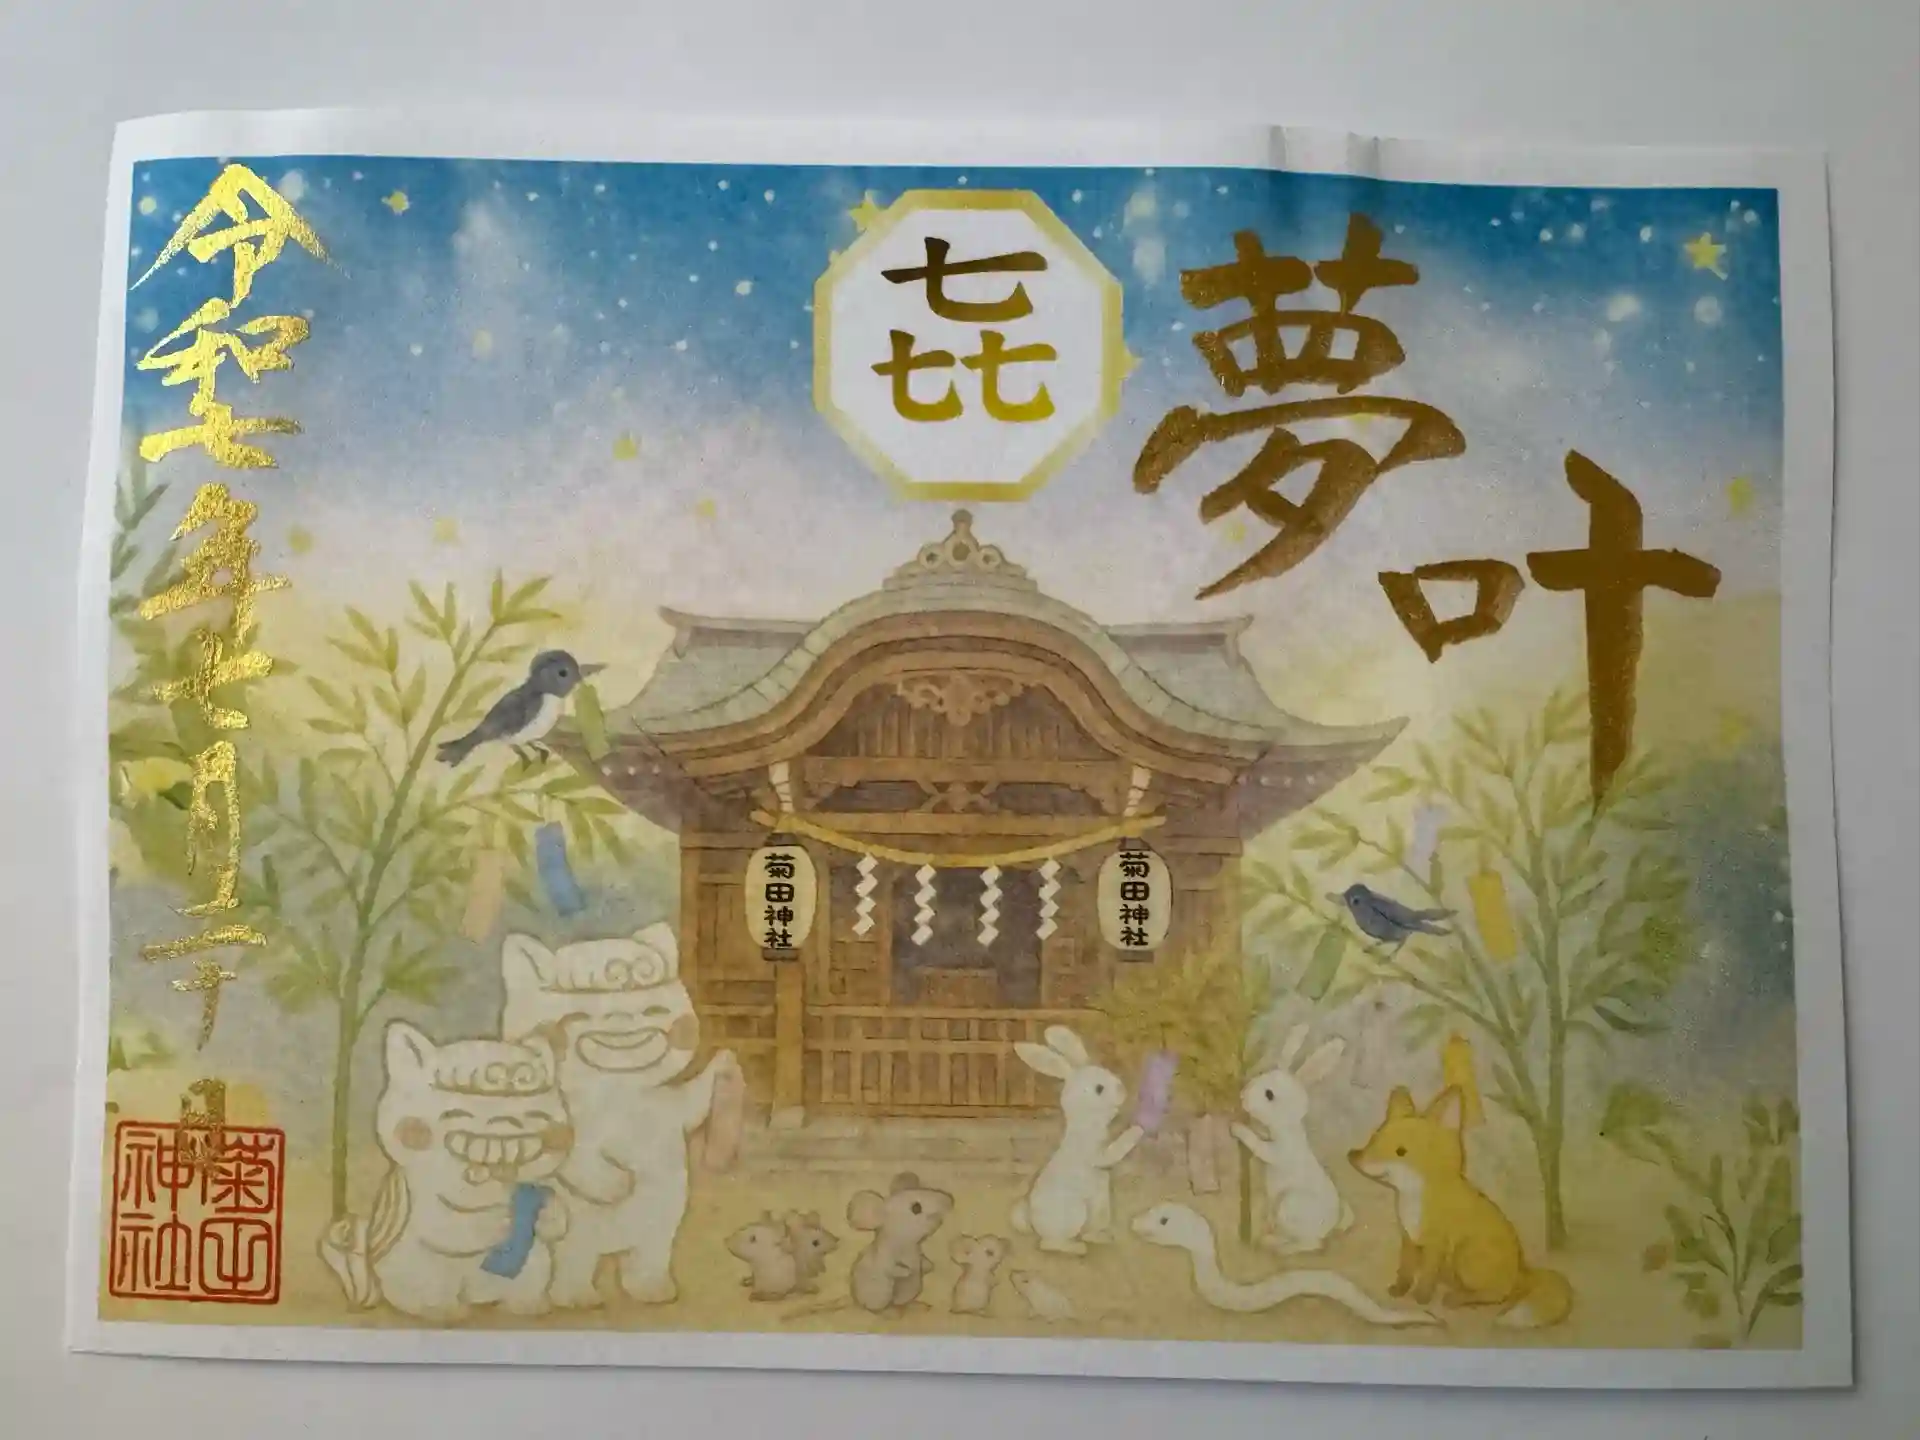 夢叶
㐂
菊田神社
菊田神社
令和七年七月三十日
菊田神社